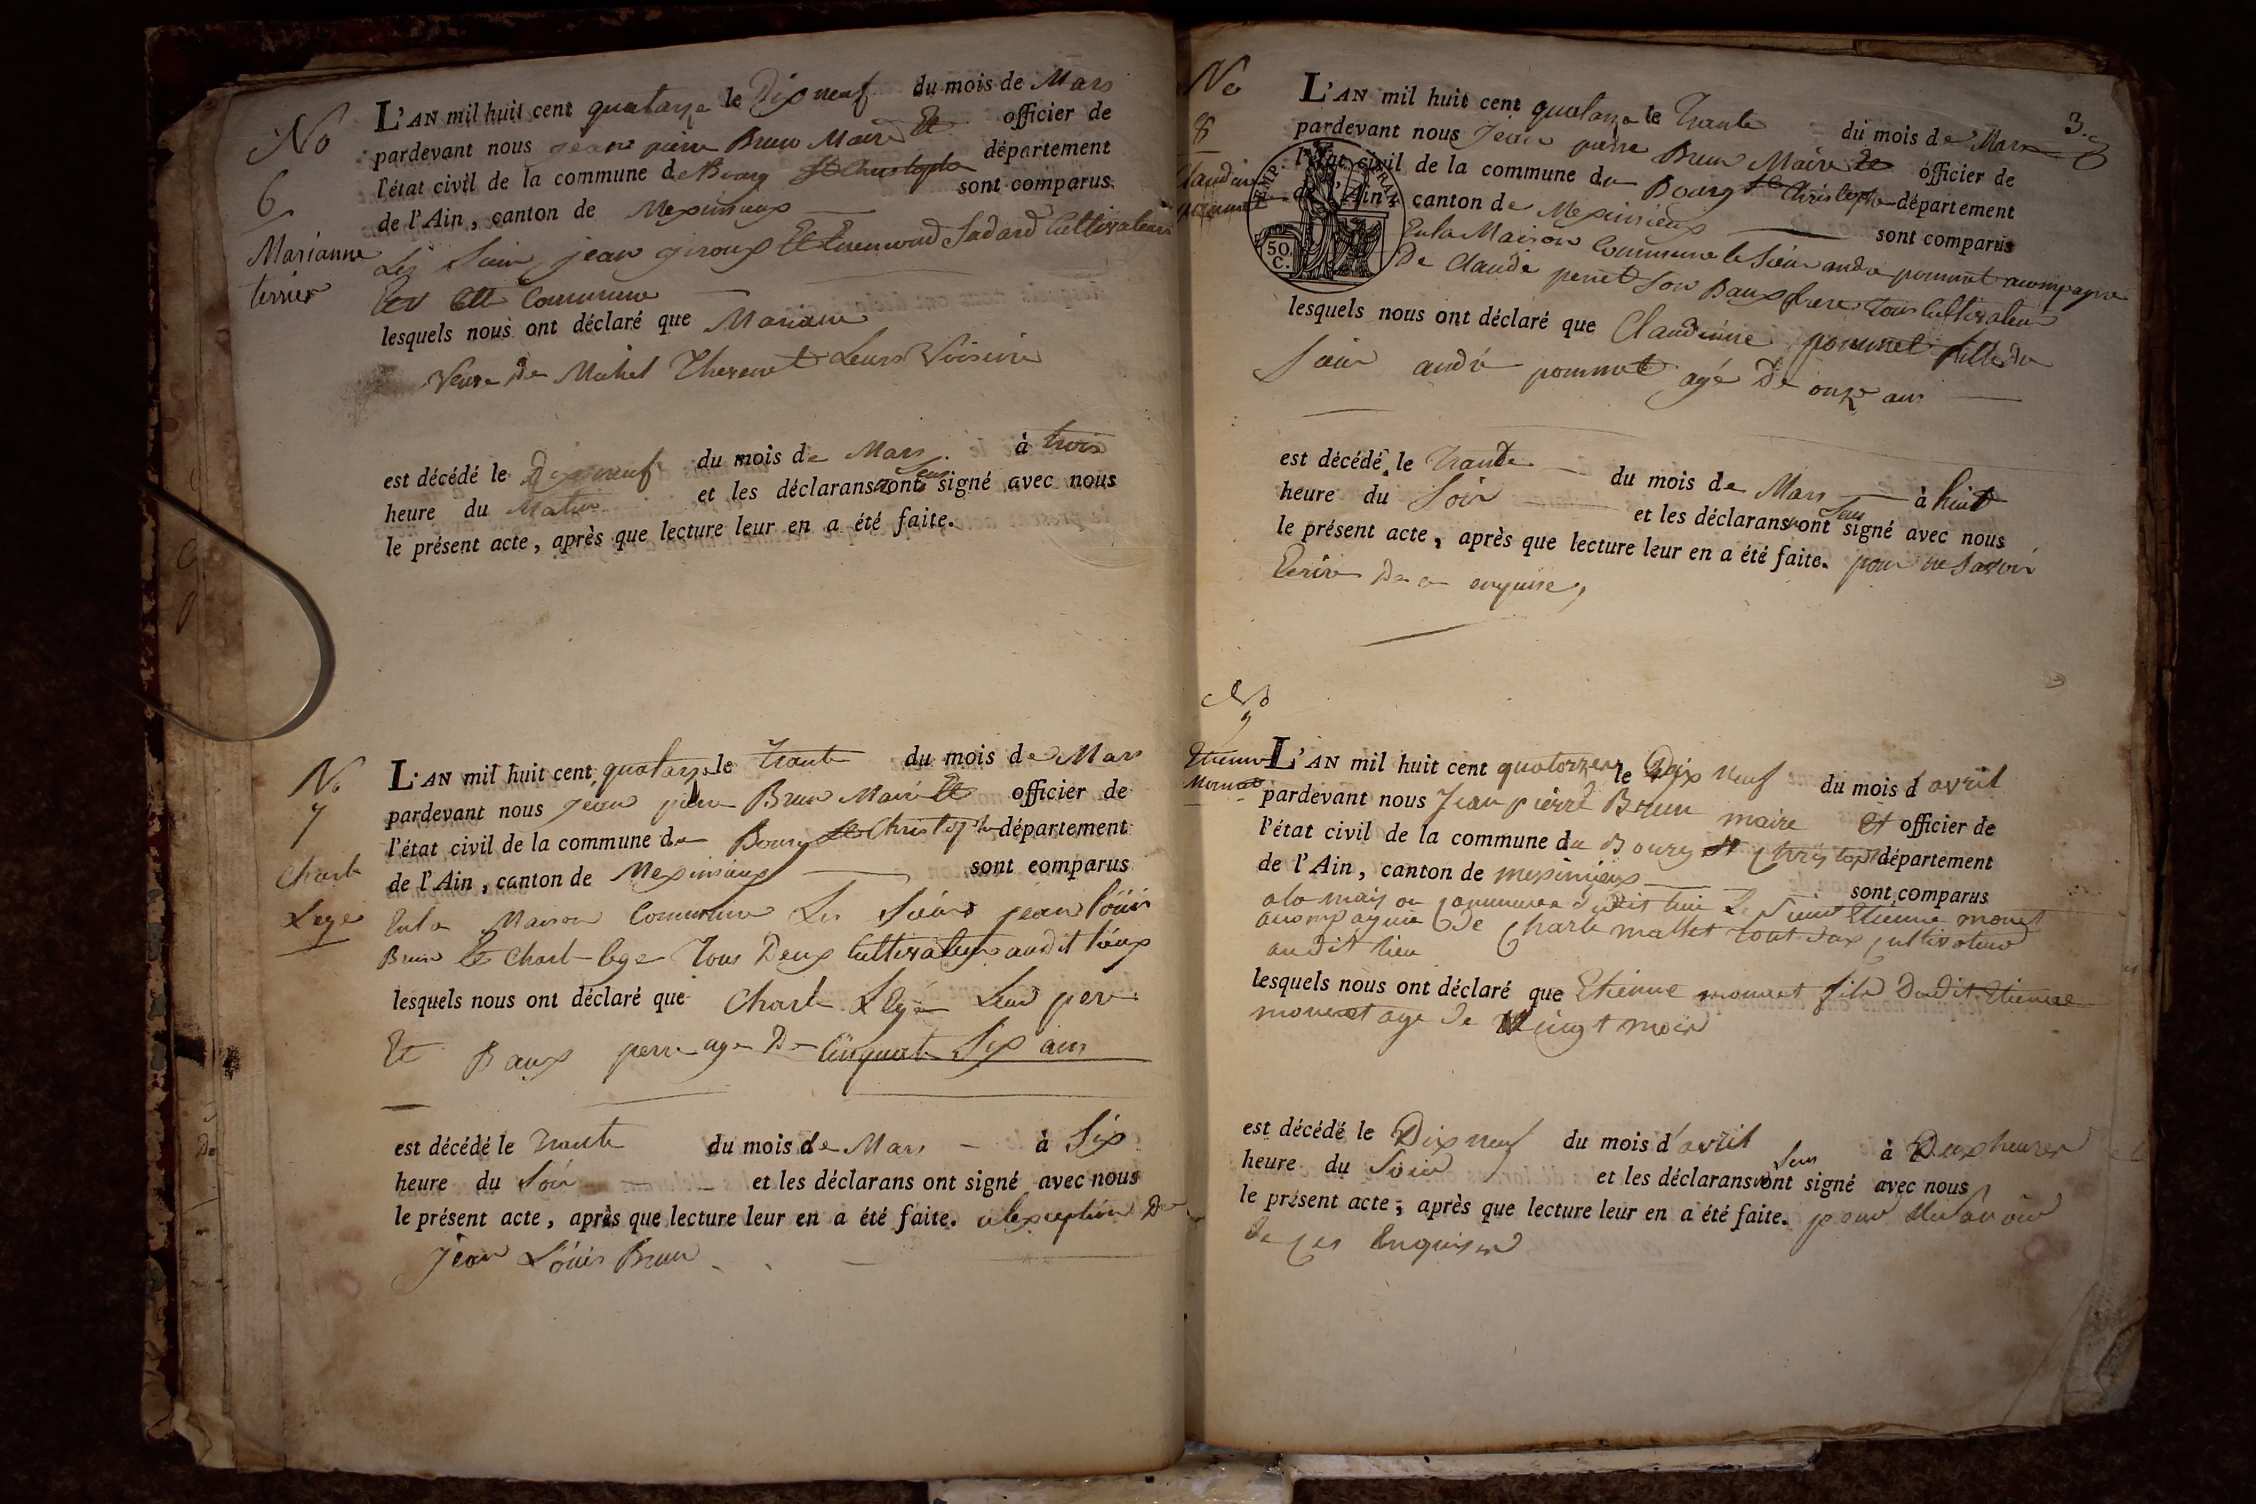 No
6
Marianne
terrier
L'AN mil huit cent quatorze le Dix neuf du mois de Mars
pardevant nous jean pierre Brun Maire Et officier de
l'état civil de la commune de Bourg St Christophe département
de l'Ain, canton de Meximieux sont comparus
Les Sieur jean giroux Et Sadard Cultivateurs
Commune
lesquels nous ont déclaré que Mariane
Veuve De Michel Thevenet Leurs Voisine
est décédé le Dix neuf du mois de Mars à trois
heure du Matin et les déclarans nont seu signé avec nous
le présent acte, après que lecture leur en a été faite.
No
7
Charle
Lege
L'AN mil huit cent quatorze le Trante du mois de Mars
pardevant nous jean pierre Brun Maire Et officier de
l'état civil de la commune de Bourg St Christophe département
de l'Ain, canton de Meximieux sont comparus
Enla Maison Commune Les Sieurs jean louis
Brun Et Charle lege Tous Deux Cultivateur audit lieux
lesquels nous ont déclaré que Charle Lege Leur pere
Et Baux perre age De Cinquate Six ans
est décédé le Trante du mois de Mars à Six
heure du Soir et les déclarans ont signé avec nous
le présent acte, après que lecture leur en a été faite. alexception De
Jean Louis Brun
3.e
No
8
Claudine
pommet
TIMP.
FRAN
50
C.
L'AN mil huit cent quatorze le Trante du mois de Mars
pardevant nous Jean pierre Brun Maire Et officier de
l'état civil de la commune de Bourg St Christophe département
de l'Ain, canton de Meximieux sont comparus
Enla Maison Commune le Sieur andre pommet acompagne
De Claude perret Son Baux frere Tous Cultivateur
lesquels nous ont déclaré que Claudinne pommet fille du
Sieur andré pommet agé De onze ans
est décédé le Trande du mois de Mars à huit
heure du Soir et les déclarans nont seu signé avec nous
le présent acte, après que lecture leur en a été faite. pour ne Savoir
Ecrire De ce enquise,
No
9
Etienne
Monnet
L'AN mil huit cent quatorze le Dix neuf du mois d avril
pardevant nous Jean pierre Brun maire Et officier de
l'état civil de la commune du Bourg St Christophe département
de l'Ain, canton de meximieux sont comparus
a la maison commune dudit lieu Le Sieur Etienne monet
acompagnie De Charle mallet tout deux Cultivateur
audit lieu
lesquels nous ont déclaré que Etienne monnet fils Dudit Etienne
monnet age de Vingt mois
est décédé le Dix neuf du mois d'avril à Deux heures
heure du Soir et les déclarans nont seus signé avec nous
le présent acte, après que lecture leur en a été faite. pour
de ces Enquiser